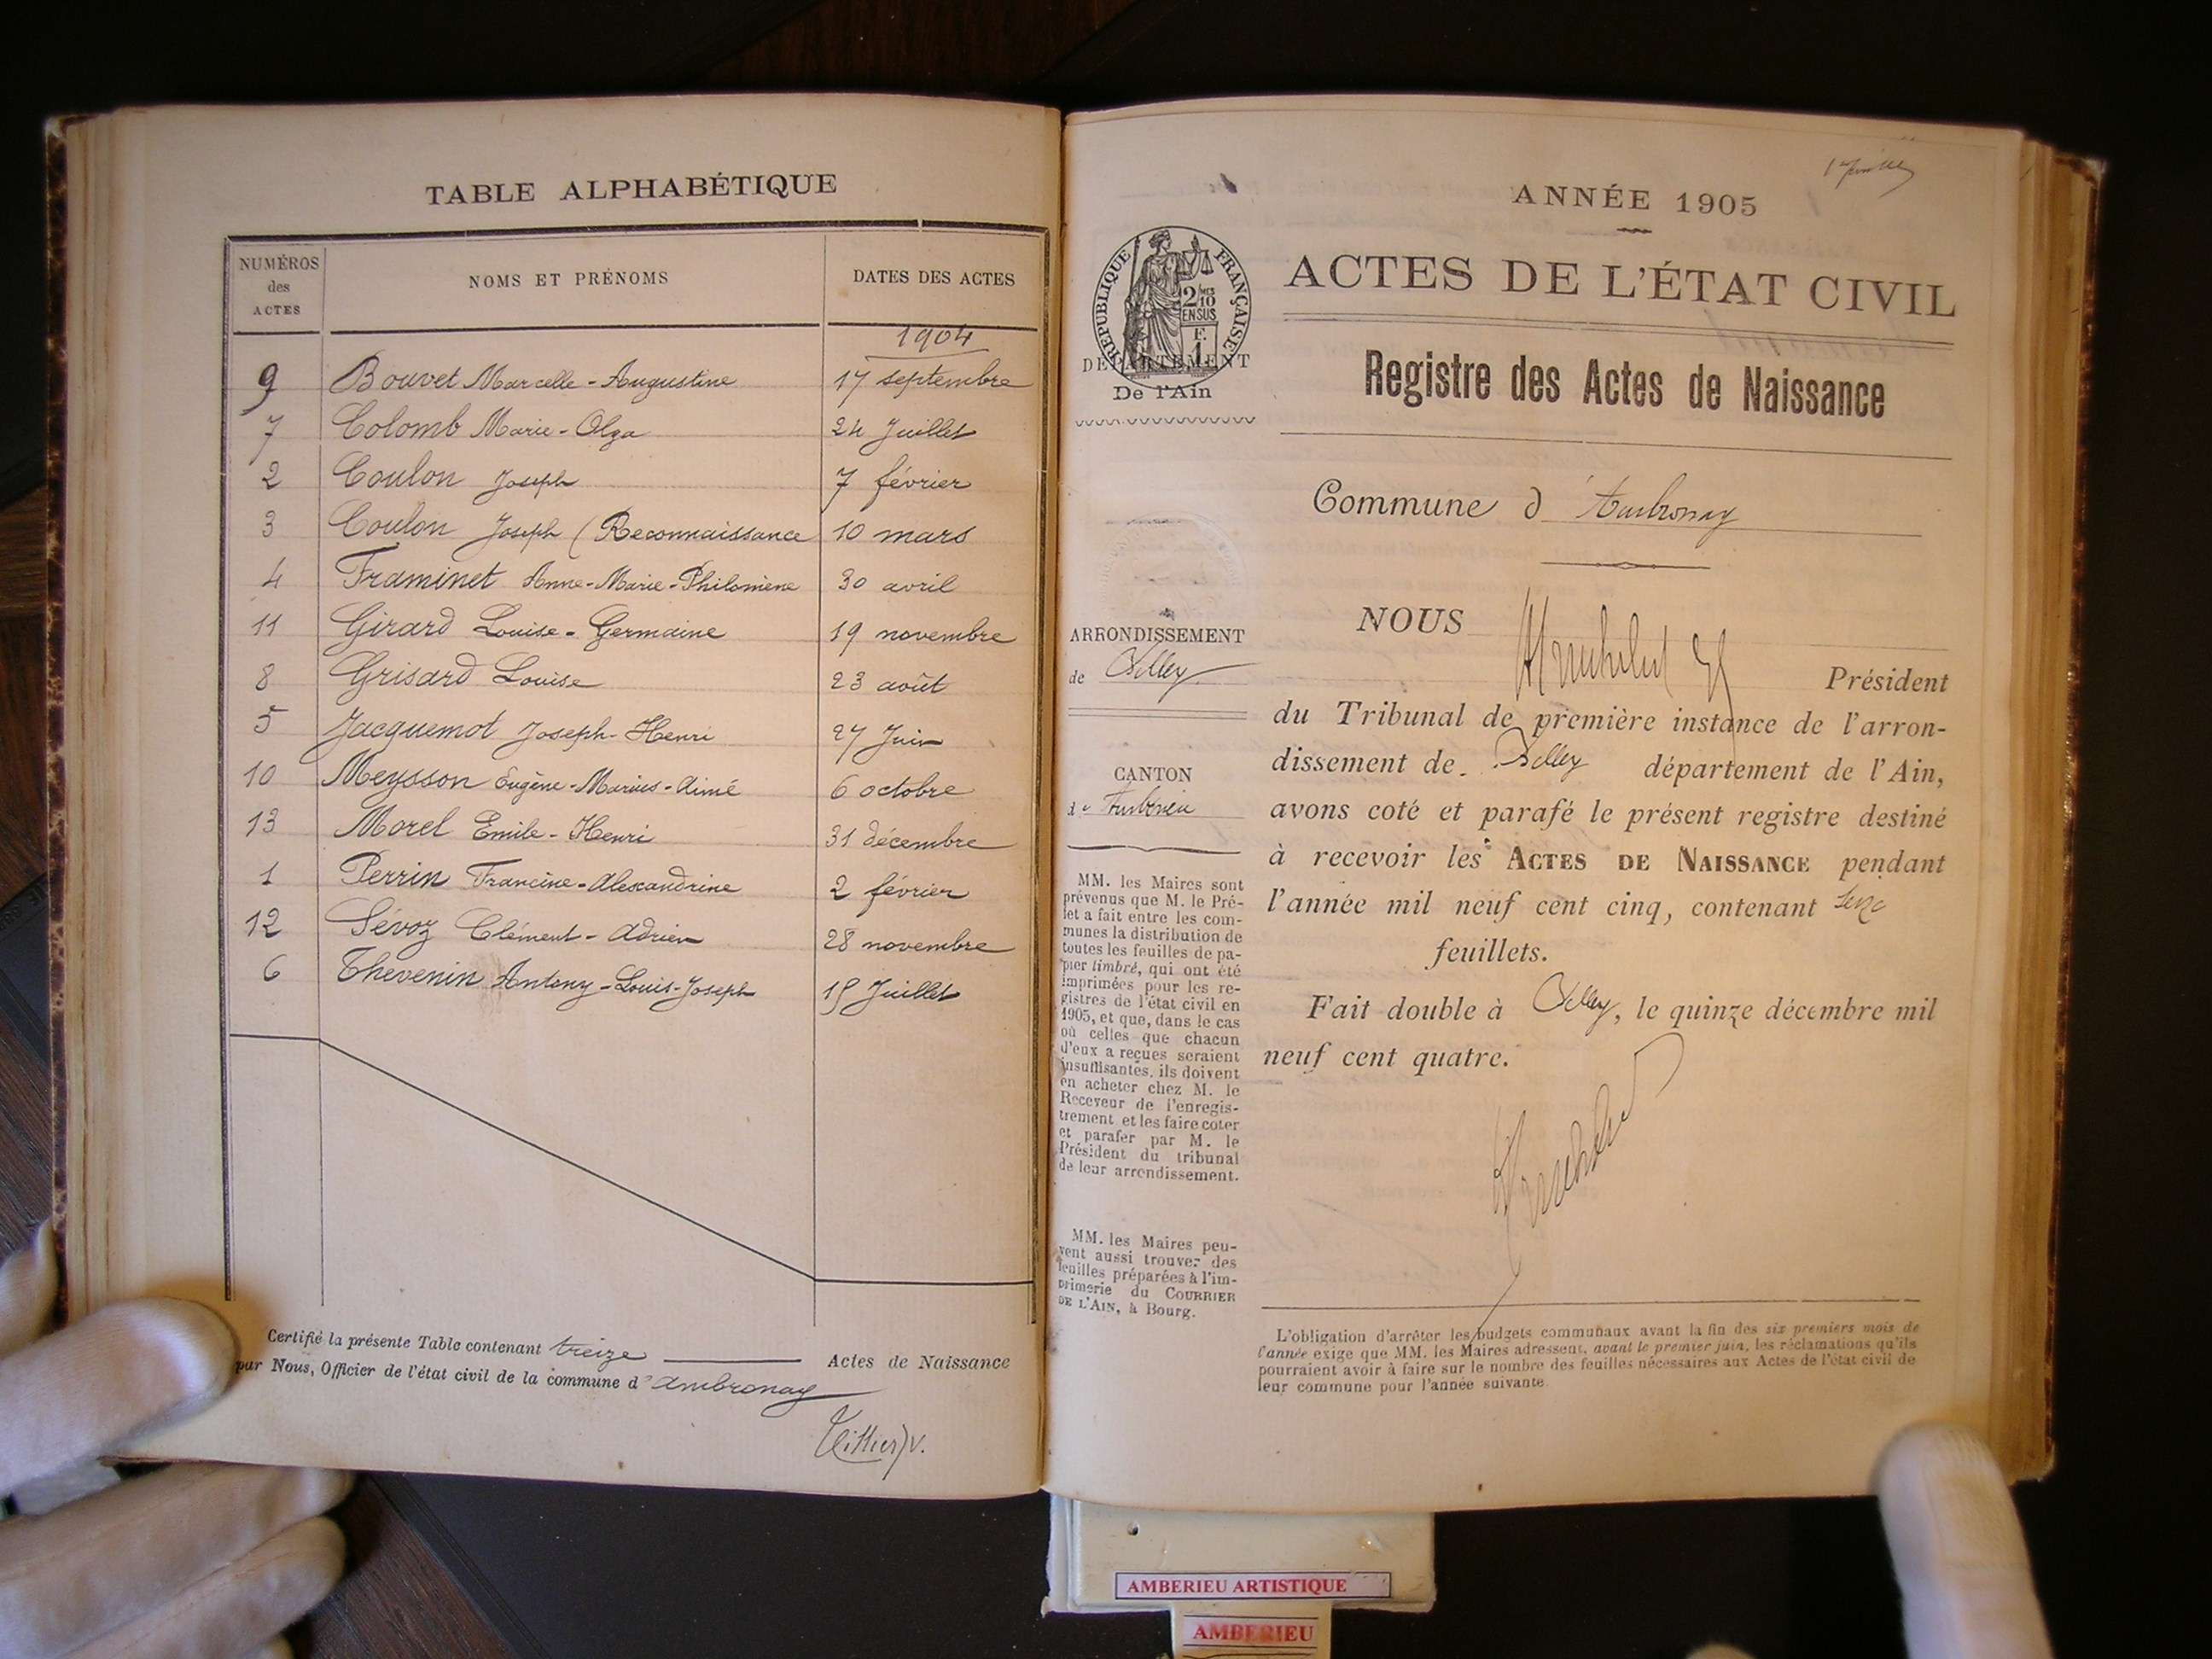 TABLE ALPHABÉTIQUE
NUMÉROS des ACTES
NOMS ET PRÉNOMS
DATES DES ACTES
1904
9 Bouvet Marcelle-Augustine 17 septembre
7 Colomb Marie-Olga 24 Juillet
2 Coulon Joseph 7 février
3 Coulon Joseph (Reconnaissance 10 mars
4 Framinet Anne-Marie-Philomène 30 avril
11 Girard Louise-Germaine 19 novembre
8 Grisard Louise 23 août
5 Jacquemot Joseph-Henri 27 Juin
10 Meysson Eugène-Marius-Aimé 6 octobre
13 Morel Emile-Henri 31 décembre
1 Perrin Francine-Alexandrine 2 février
12 Sévoz Clément-Adrien 28 novembre
6 Thevenin Antony-Louis-Joseph 15 Juillet
Certifié la présente Table contenant treize Actes de Naissance
par Nous, Officier de l'état civil de la commune d'Ambronay
ANNÉE 1905
RÉPUBLIQUE FRANÇAISE
2/10 MES
EN SUS
F.
1
DÉPARTEMENT
De l'Ain
ACTES DE L'ÉTAT CIVIL
Registre des Actes de Naissance
Commune d'Ambronay
ARRONDISSEMENT
de Belley
CANTON
d'Ambérieu
MM. les Maires sont
prévenus que M. le Pré-
fet a fait entre les com-
munes la distribution de
toutes les feuilles de pa-
pier timbré, qui ont été
imprimées pour les re-
gistres de l'état civil en
1905, et que, dans le cas
où celles que chacun
d'eux a reçues seraient
insuffisantes, ils doivent
en acheter chez M. le
Receveur de l'enregis-
trement et les faire coter
et parafer par M. le
Président du tribunal
de leur arrondissement.
MM. les Maires peu-
vent aussi trouver des
feuilles préparées à l'im-
primerie du COURRIER
DE L'AIN, à Bourg.
NOUS
Président
du Tribunal de première instance de l'arron-
dissement de Belley département de l'Ain,
avons coté et parafé le présent registre destiné
à recevoir les ACTES DE NAISSANCE pendant
l'année mil neuf cent cinq, contenant
feuillets.
Fait double à Belley, le quinze décembre mil
neuf cent quatre.
L'obligation d'arrêter les budgets communaux avant la fin des six premiers mois de
l'année exige que MM. les Maires adressent, avant le premier juin, les réclamations qu'ils
pourraient avoir à faire sur le nombre des feuilles nécessaires aux Actes de l'état civil de
leur commune pour l'année suivante.
AMBERIEU ARTISTIQUE
AMBERIEU